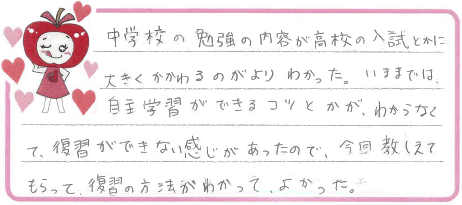 中学校の勉強の内容が高校の入試とかに
大きくかかわるのがよりわかった。いままでは、
自主学習ができるコツとかが、わからなく
て、復習ができない感じがあったので、今回教しえて
もらって、復習の方法がわかって、よかった。